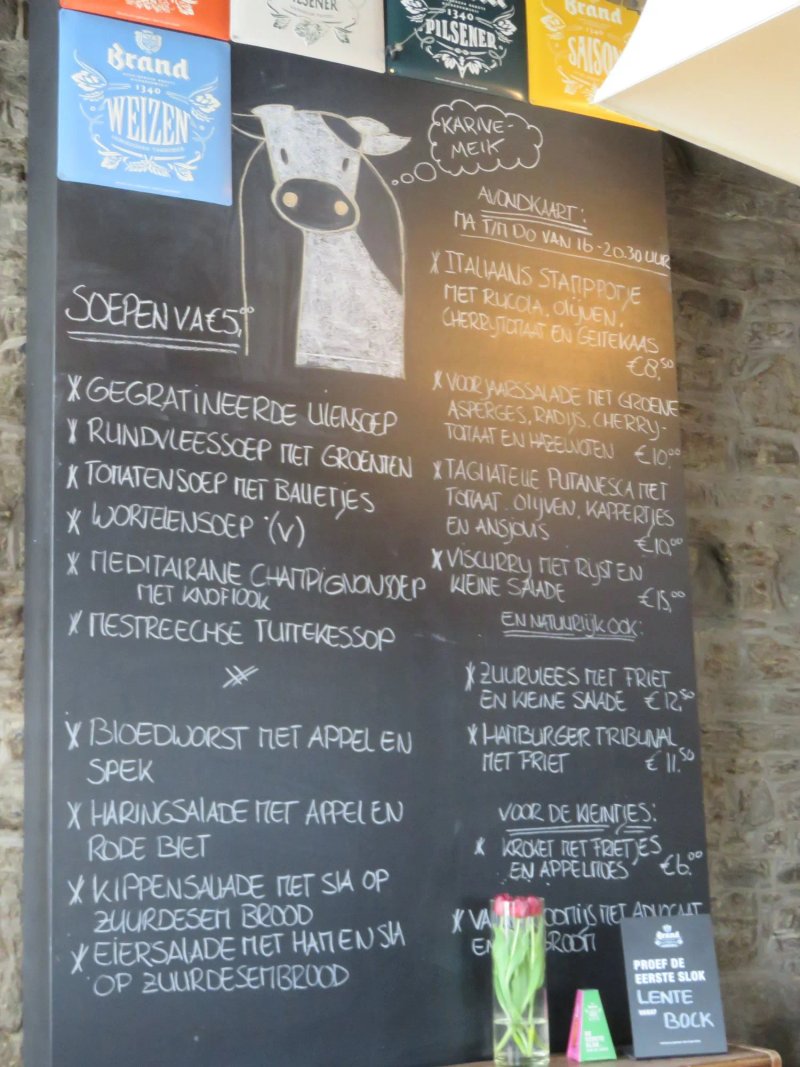 PILSENER
Brand
1340
WEIZEN
1340
PILSENER
Brand
1340
SAISON
KARIVE-
MEIK
SOEPEN VA €5,00
X GEGRATINEERDE UIENSOEP
X RUNDVLEESSOEP MET GROENTEN
X TOMATENSOEP MET BALLETJES
X WORTELENSOEP (V)
X MEDITAIRANE CHAMPIGNONSOEP
MET KNOFLOOK
X MESTREECHSE TUITEKESSOP
X BLOEDWORST MET APPEL EN
SPEK
X HARINGSALADE MET APPEL EN
RODE BIET
X KIPPENSALADE MET SLA OP
ZUURDESEM BROOD
X EIERSALADE MET HAM EN SLA
OP ZUURDESEMBROOD
AVONDKAART:
MA T/M DO VAN 16-20.30 UUR
X ITALIAANS STAMPPOTJE
MET RUCOLA, OLIJVEN,
CHERRYTOMAAT EN GEITEKAAS
€8,50
X VOORJAARSSALADE MET GROENE
ASPERGES, RADIJS, CHERRY-
TOMAAT EN HAZELNOTEN €10,00
X TAGLIATELLE PUTANESCA MET
TOMAAT, OLIJVEN, KAPPERTJES
EN ANSJOVIS €10,00
X VISCURRY MET RIJST EN
KLEINE SALADE €15,00
EN NATUURLIJK OOK:
X ZUURVLEES MET FRIET
EN KLEINE SALADE €12,50
X HAMBURGER TRIBUNAL
MET FRIET €11,50
VOOR DE KLEINTJES:
X KROKET MET FRIETJES
EN APPELMOES €6,00
X MET ADVOCAAT
EN
Brand
PROEF DE
EERSTE SLOK
LENTE
VANAF
BOCK